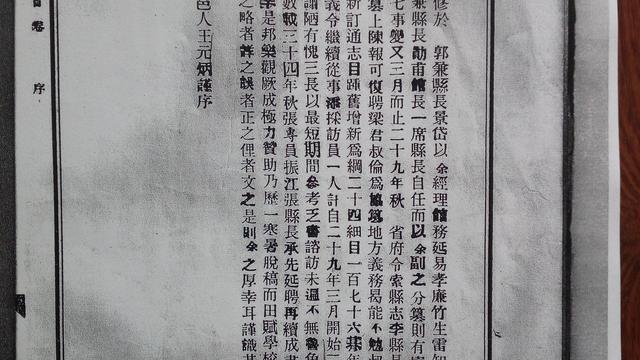 修於　郭兼縣長景岱以余經理館務延易孝廉竹生雷知
兼縣長勛甫館長一席縣長自任而以余副之分纂則有
七事變又三月而止二十九年秋　省府令索縣志李縣長
纂上陳報可復聘梁君叔倫為協纂地方義務曷能不勉叔
新訂通志目踵舊增新為綱二十四細目一百七十六其年
義令繼續從事添採訪員一人計自二十九年三月開始
譾陋有愧三長以最短期間參考乏書諮訪未週不無魯魚
數載三十四年秋張專員振江張縣長承先延聘再續成書
是邦樂觀厥成極力贊助乃歷一寒暑脫稿而田賦學校
之略者詳之誤者正之俚者文之是則余之厚幸耳謹識其
邑人王元炳謹序
卷　序